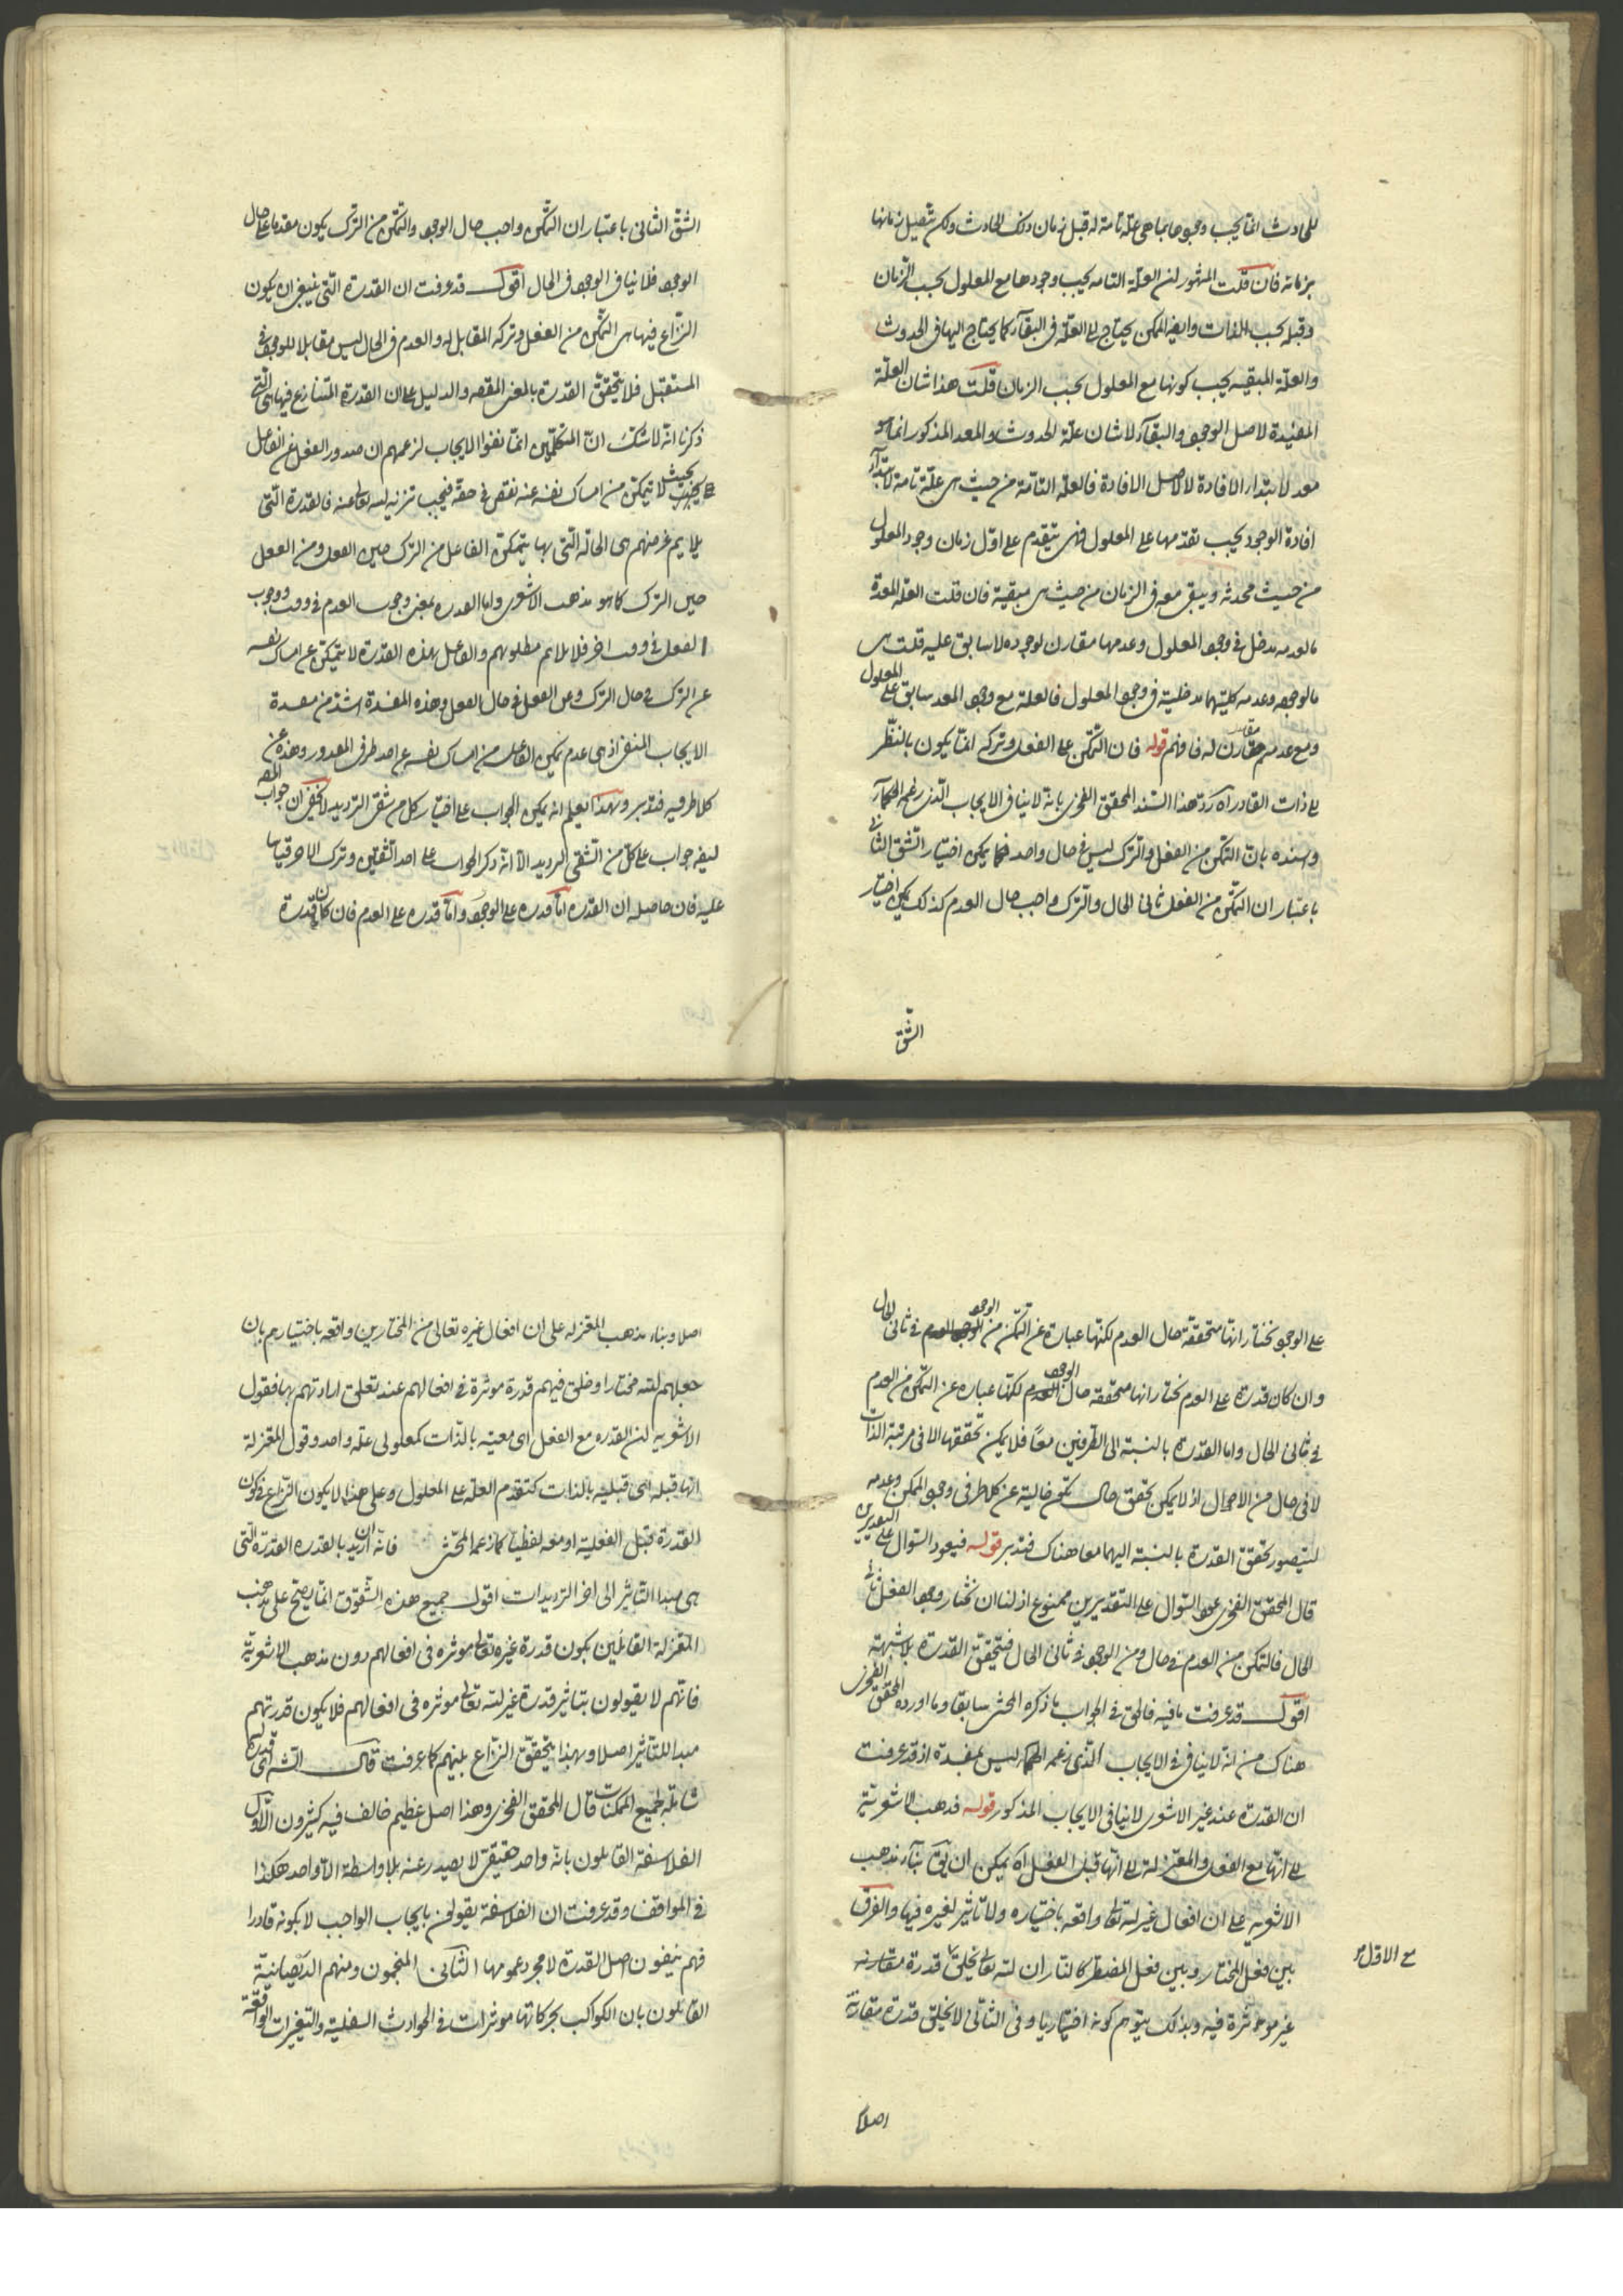 للحادث انما يجب وجودها بما هي علة تامة له قبل زمان ذلك الحادث ولكن يتصل زمانها
بزمانه فان قلت المشهور ان العلة التامه يجب وجودها مع المعلول بحسب الزمان
وقبله بحسب الذات وايضا الممكن يحتاج الى العلة في البقآء كما يحتاج اليها في الحدوث
والعلة المبقيه يجب كونها مع المعلول بحسب الزمان قلت هذا شان العلة
المفيدة لاصل الوجود والبقآء لا شان علة الحدوث والمعد المذكور انما هو
معد لابتداء الافادة لا لاصل الافادة فالعلة التامة من حيث هي علة تامة لابتدآء
افادة الوجود يجب تقدمها على المعلول فهي تتقدم على اول زمان وجود المعلول
من حيث محدثه ويبقى معه في الزمان من حيث هي مبقية فان قلت العلة المعدة
مالعدمه مدخل في وجود المعلول وعدمها مقارن لوجوده لا سابق عليه قلت هي
مالوجوده وعدمه كليتهما مدخلية في وجود المعلول فالعلة مع وجود المعد سابق على المعلول
ومع عدمه مقارن له فافهم قوله فان التمكن على الفعل وتركه انما يكون بالنظر
الى ذات القادر آه ردّ هذا السند المحقق الفخري بانه لا ينافي الايجاب الذي زعمه الحكمآء
وسنده بان التمكن من الفعل والترك ليس في حال واحد فكما يمكن اختيار الشق الثاني
باعتبار ان التمكن من الفعل ثاني الحال والترك واجب حال العدم كذلك يمكن اختيار
الشق
الشق الثاني باعتبار ان التمكن واجب حال الوجود والتمكن من الترك يكون مقدما على حال
الوجود فلا ينافي الوجود في الحال اقول قد عرفت ان القدرة التي ينبغي ان يكون
النزاع فيها هي التمكن من الفعل وتركه المقابل له والعدم في الحال ليس مقابلا للوجود في
المستقبل فلا يتحقق القدرة بالمعنى المقصود والدليل على ان القدرة المتنازع فيها هي التي
ذكرنا انه لا شك انّ المتكلمين انما نفوا الايجاب لزعمهم ان صدور الفعل عن الفاعل
بحيث لا يتمكن من امساك نفسه عنه نقص في حقه فيجب تنزيه الله تعالى عنه فالقدرة التي
يلايم غرضهم هي الحالة التي بها يتمكن الفاعل من الترك حين الفعل ومن الفعل
حين الترك كما هو مذهب الاشعري واما القدره بمعنى وجوب العدم في وقت ووجوب
الفعل في وقت اخر فلا يلائم مطلوبهم والفاعل بهذه القدرة لا يتمكن عن امساك نفسه
عن الترك في حال الترك وعن الفعل في حال الفعل وهذه المفسدة اشد من مفسدة
الايجاب المنفي اذ هي عدم تمكين الفاعل من امساك نفسه عن احد طرفي المقدور وهذه عن
كلا طرفيه فتدبر وبهذا يعلم انه يمكن الجواب على اختيار كل من شقي الترديد لا يخفى ان جواب المصـ
ايضه جواب على كل من الشقي الترديد الا انه ذكر الجواب على احد الشقين وترك الاخر قياسا
عليه فان حاصله ان القدره اما قدره على الوجود واما قدره على العدم فان كان قدرة
على الوجود نختار انها متحققة حال العدم لكنها عبارة عن التمكن من الوجود في ثاني الحال
وان كان قدرة على العدم نختار انها متحققه حال الوجود لكنها عباره عن التمكن من العدم
في ثاني الحال واما القدرة بالنسبة الى الطرفين معًا فلا يمكن تحققها الا في مرتبة الذات
لا في حال من الاحوال اذ لا يمكن تحقق حال تكون خالية عن كلا طرفي وجود الممكن وعدمه
ليتصور تحقق القدرة بالنسبة اليهما معا هناك فتدبر قوله فيعود السوال على التقديرين
قال المحقق الفخري عود السوال على التقديرين ممنوع اذ لنا ان نختار وجود الفعل ثاني
الحال فالتمكن من العدم في حال ومن الوجود في ثاني الحال فيتحقق القدرة بلا شبهة
اقول قد عرفت ما فيه فالحق في الجواب ما ذكره المحشي سابقا وما اورده المحقق الفخري
هناك من انه لا ينافي في الايجاب الذي زعمه الحكمآء ليس بمفسدة اذ قد عرفت
ان القدرة عند غير الاشعري لا ينافي الايجاب المذكور قوله فذهب الاشعرية
الى انها مع الفعل والمعتزلة الى انها قبل الفعل آه يمكن ان يق بنآء مذهب
الاشعريه على ان افعال غير الله تعالى واقعه باختياره ولا تاثير لغيره فيها والفرق
بين فعل المختار وبين فعل المضطر كالنار ان الله تعالى يخلق قدرة مقارنه
مع الاول
غير موثرة فيه وبذلك يتوهم كونه اختياريا وفي الثاني لا يخلق قدرة مقارنة
اصلا
اصلا وبناء مذهب المعتزله على ان افعال غيره تعالى من المختارين واقعه باختيارهم بان
جعلهم الله مختارا وخلق فيهم قدرة موثرة في افعالهم عند تعلق ارادتهم بها فقول
الاشعريه ان القدره مع الفعل اى معيته بالذات كمعلولي علة واحد وقول المعتزلة
انها قبله اى قبليه بالذات كتقدم العلة على المعلول وعلى هذا لا يكون النزاع في كون
القدرة قبل الفعلية او معه لفظيا كما زعمه المحشي فانه ان اريد بالقدره القدرة التي
هي مبدا التاثير الى اخر الترديدات اقول جميع هذه الشقوق انما يصح على مذهب
المعتزلة القائلين بكون قدرة غيره تعالى موثره في افعالهم دون مذهب الاشعرية
فانهم لا يقولون بتاثير قدرة غير الله تعالى موثره في افعالهم فلا يكون قدرتهم
مبدا للتاثير اصلا وبهذا يتحقق النزاع بينهم كما عرفت قال الش اى قدرة الله
شاملة لجميع الممكنات قال المحقق الفخري وهذا اصل عظيم خالف فيه كثيرون الاول
الفلاسفة القايلون بانه واحد حقيقي لا يصدر عنه بلا واسطة الا واحد هكذا
في المواقف وقد عرفت ان الفلاسفة يقولون بايجاب الواجب لا بكونه قادرا
فهم ينفون اصل القدرة لا مجرد عمومها الثاني المنجمون ومنهم الديصانية
القايلون بان الكواكب بحركاتها موثرات في الحوادث السفلية والتغيرات الواقعة